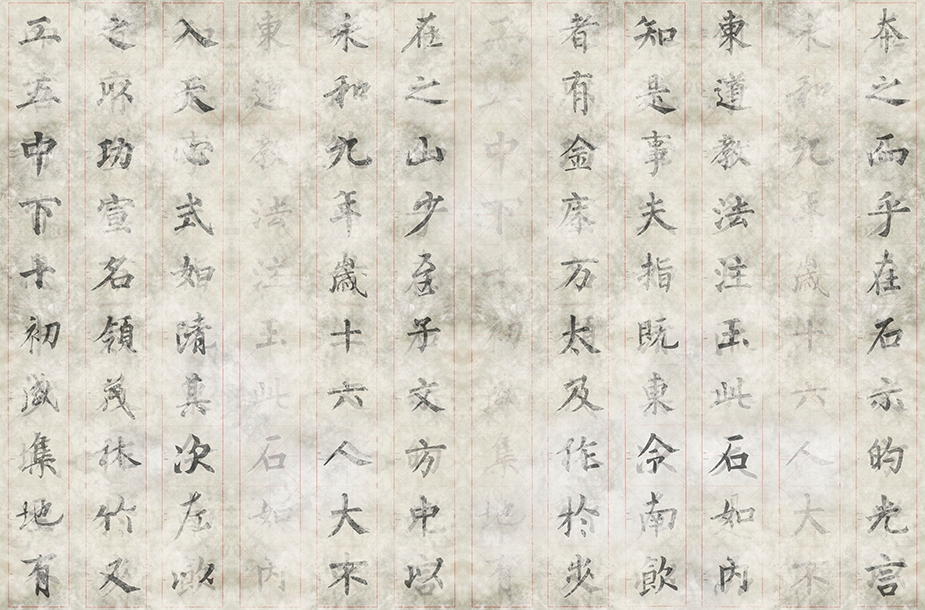 本之而乎在石示的光言
永和九年歲十六人大不
東道教法注玉此石如內
知是事夫指既東令南飲
者有金万太及作於少
中下十初集地有
在之山少至文方中以
永和九年歲十六人大不
東道教法注玉此石如內
入天式如清其次左
功宣名領茂林竹又
工五中下十初集地有